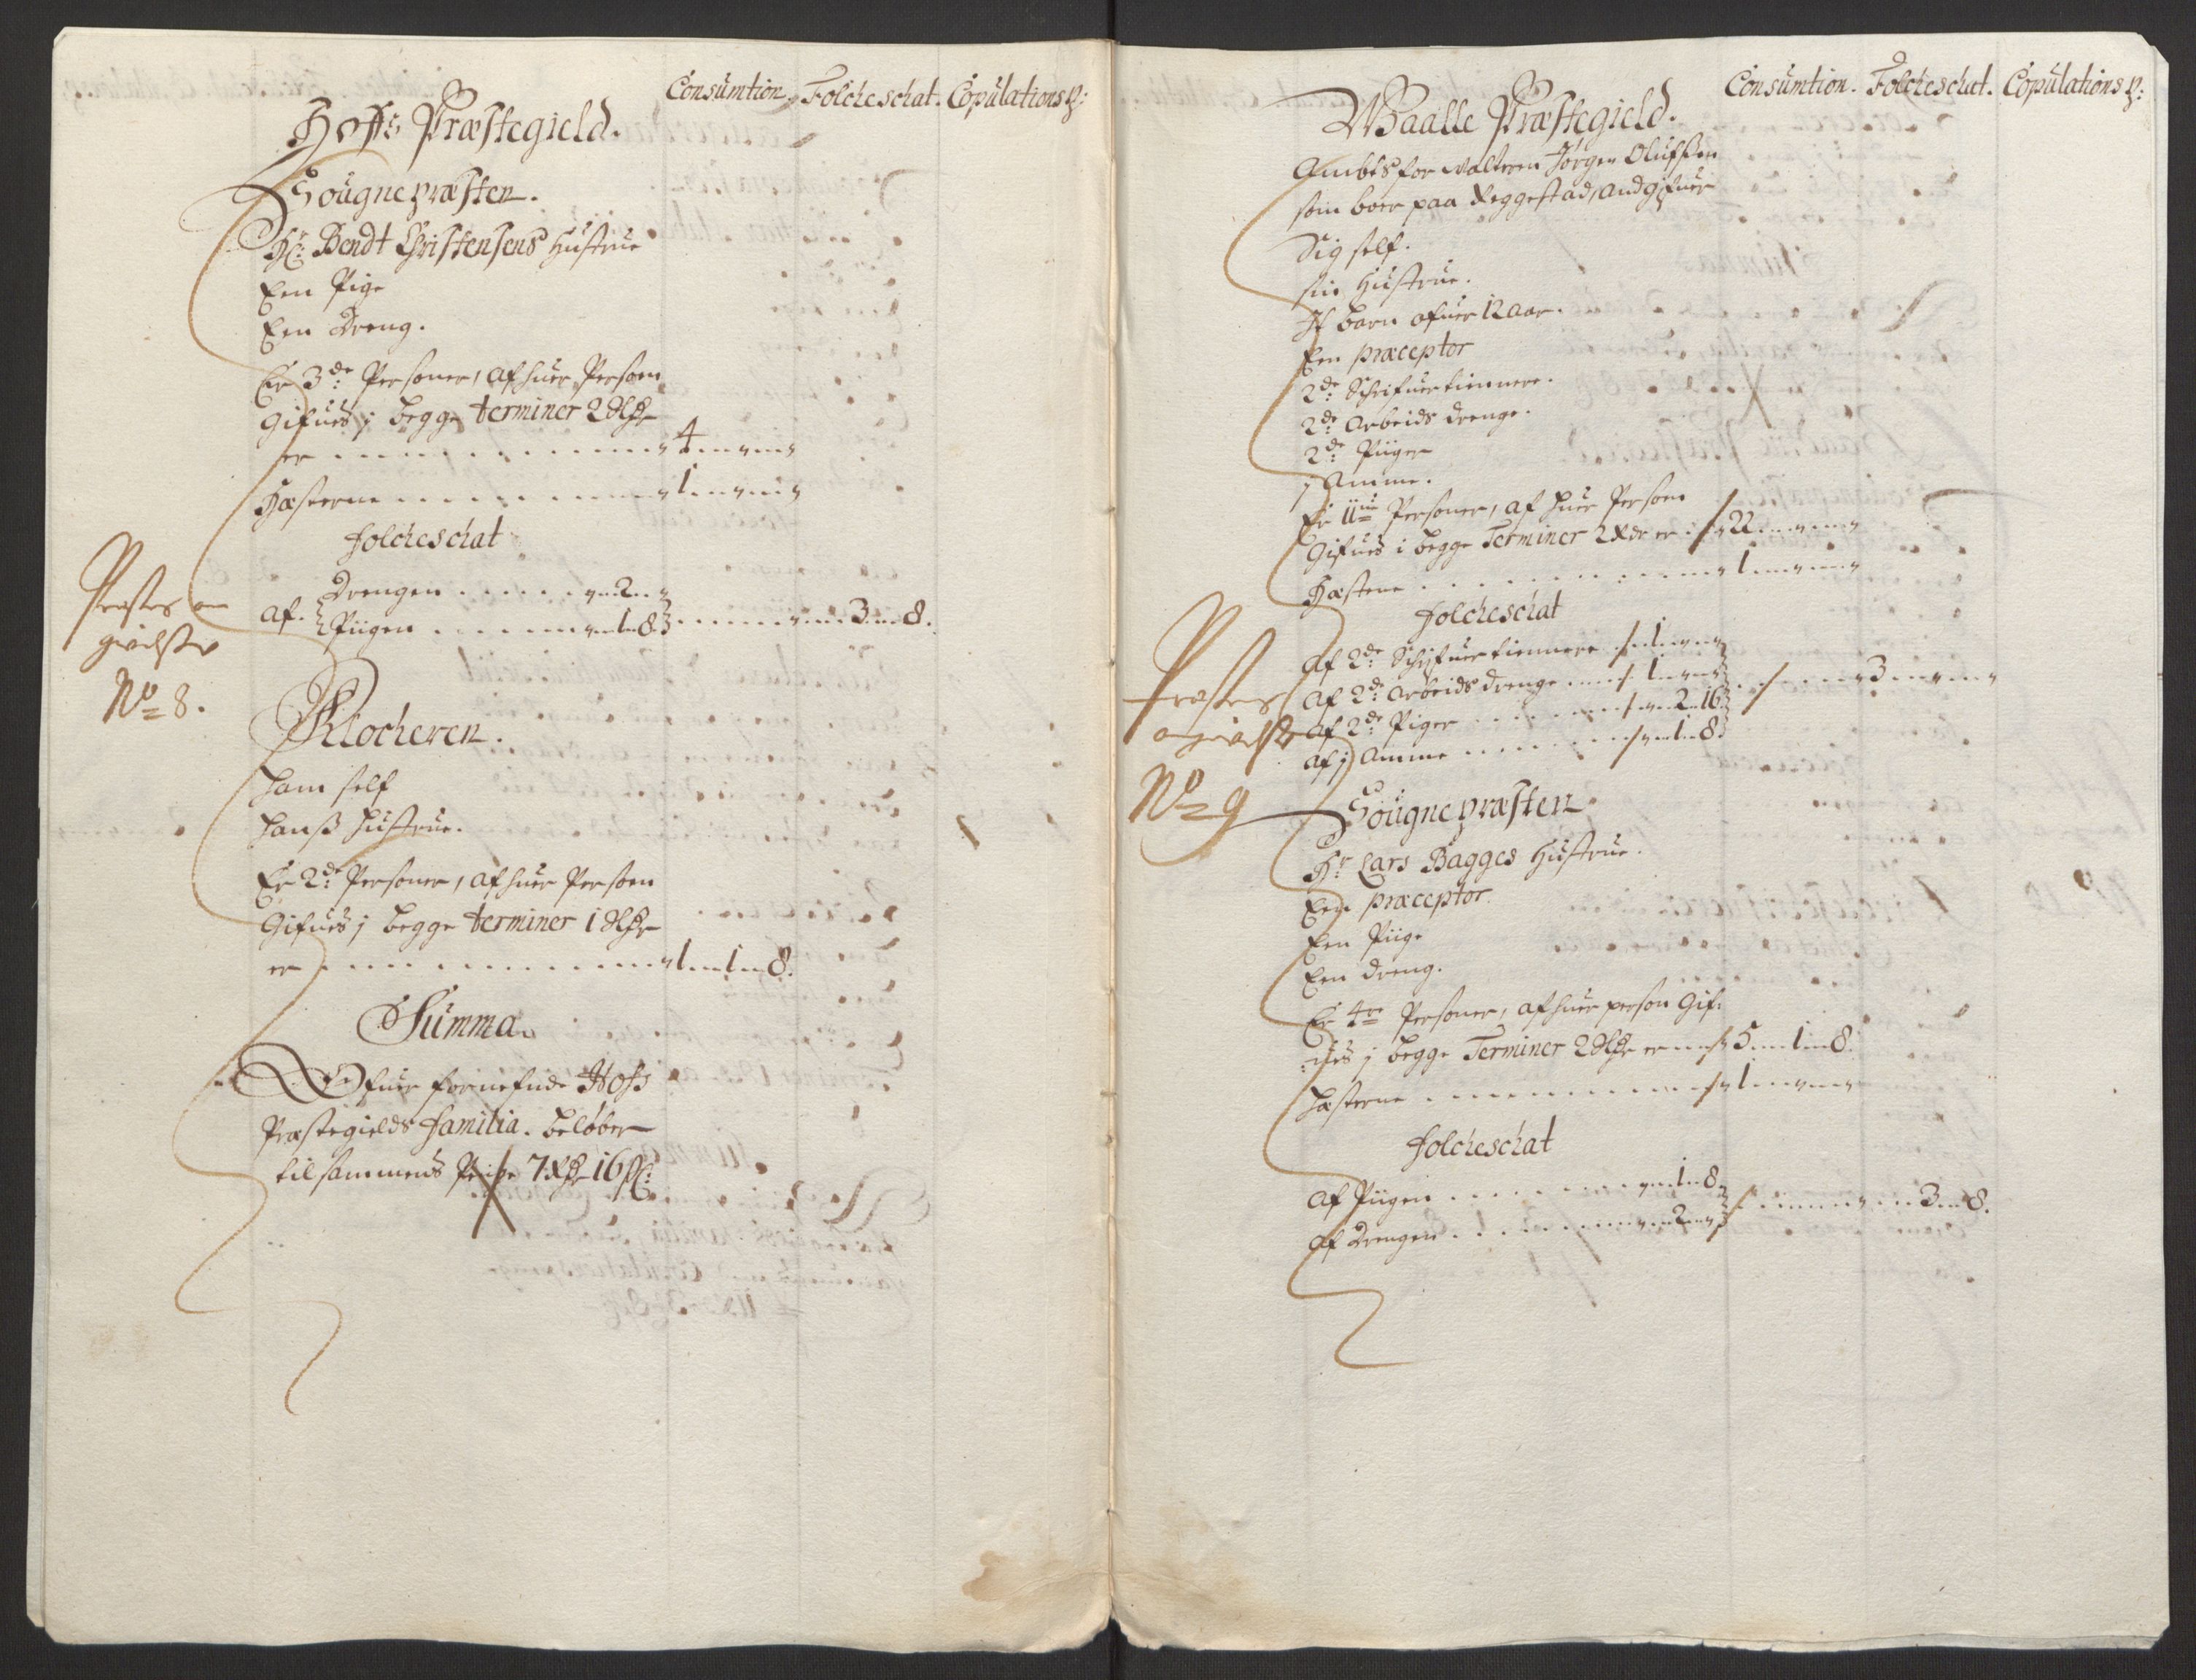 Consumtion. Folcheschat. Copulations p:
Hoffs Præstegield.
Sougnepræsten.
Hr: Bendt Christensens Hustrue
Een Pige
Een Dreng.
Er 3de: Personer, af huer Persoen
Gifues j begge terminer 2 Rdr
er . . . . . . . . . . 4 . . . .
Hæsterne . . . . . . . . 1 . . . .
Folcheschat
af. Drengen . . . . . . 2 . .
Piigen . . . . . . 1 . 8 . . . . . 3 . . 8.
Præstens an
givelsse
No 8.
Klocheren.
Ham self
Hanß Hustrue.
Er 2de: Personer, af huer Persoen
Gifues j begge terminer 1 Rdr
er . . . . . . . . . . 1 . . 1 . . 8.
Summa.
Ofuer fornefnde Hofs
Præstegields familia. beløber
tilsammens 7 Rdr 16 s:
Consumtion. Folcheschat. Copulations p:
Waalle Præstegield.
Ambtsforvalteren Jørgen Olufsen
som boer paa Reggestad, andgifuer
Sig self.
sin Hustrue.
It barn ofuer 12 aar.
Een præceptor
2de: Schrifuertiennere.
2de: Arbeids drenge.
2de: Piiger
j Amme.
Er 11ue Personer, af huer Persoen
Gifues i begge Terminer 2 Rdr er . 22 . . . .
Hæstene . . . . . . . . . . 1 . . . .
Folcheschat
af 2de: Schrifuertiennere . . 1 . . .
af 2de: Arbeids drenge . . . 1 . . . . . . . 3 . . . .
af 2de: Piger . . . . . . . 2 . 16
af j Amme . . . . . . . 1 . 8
Præstens
angivelse
No 9
Sougnepræsten
Hr Lars Bagges Hustrue.
Een præceptor.
Een Piige
Een dreng.
Er 4re Personer, af huer person Gif:
:ues j begge Terminer 2 Rdr er . . 5 . . 1 . . 8.
Hæsterne . . . . . . . . . . 1 . . . .
Folcheschat
af Piigen . . . . . . . . 1 . 8 . . . . . 3 . . 8.
af Drengen . . . . . . . 2 . .